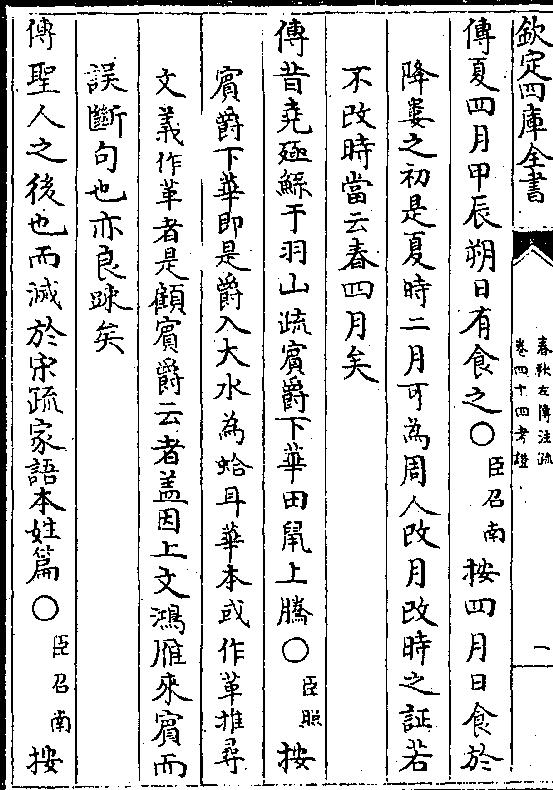 欽定四庫全書
春秋左傳注疏
卷四十四考證
一
傳夏四月甲辰朔日有食之○臣召南按四月日食於
降婁之初是夏時二月可為周人改月改時之証若
不改時當云春四月矣
傳昔堯殛鯀于羽山疏賓爵下華田䑕上騰○臣照按
賓爵下華即是爵入大水為蛤耳華本或作革推尋
文義作革者是顧賓爵云者盖因上文鴻雁來賓而
誤斷句也亦良踈矣
傳聖人之後也而滅於宋疏家語本姓篇○臣召南按